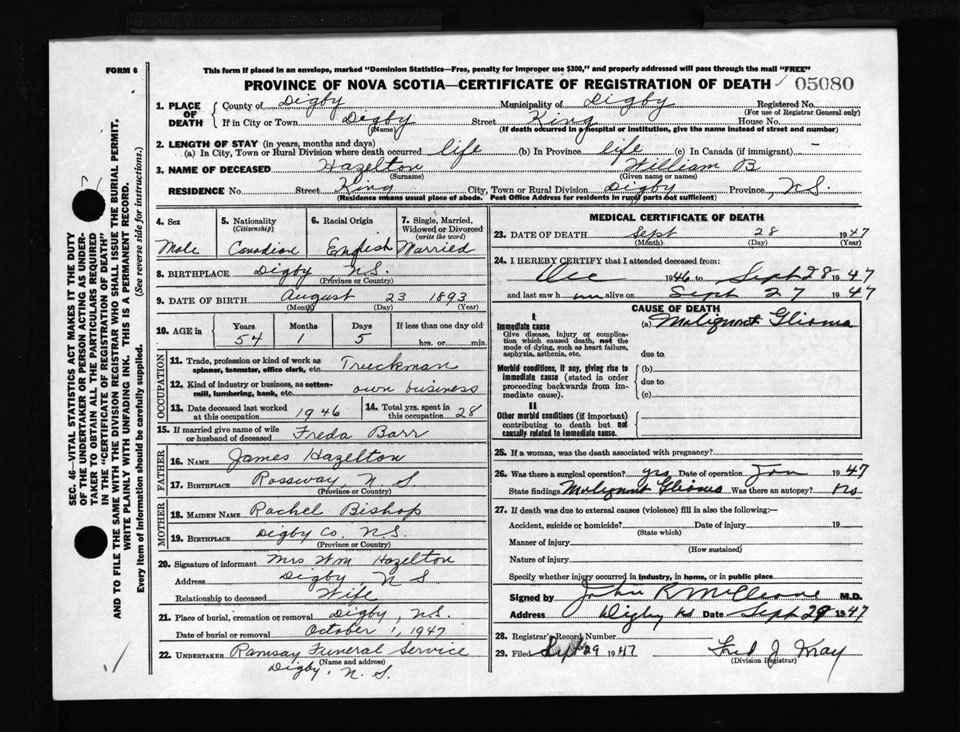 FORM 6
This form if placed in an envelope, marked "Dominion Statistics—Free, penalty for improper use $300," and properly addressed will pass through the mail "FREE"
PROVINCE OF NOVA SCOTIA—CERTIFICATE OF REGISTRATION OF DEATH
05080
SEC. 46—VITAL STATISTICS ACT MAKES IT THE DUTY
OF THE UNDERTAKER OR PERSON ACTING AS UNDER-
TAKER TO OBTAIN ALL THE PARTICULARS REQUIRED
IN THE "CERTIFICATE OF REGISTRATION OF DEATH"
AND TO FILE THE SAME WITH THE DIVISION REGISTRAR WHO SHALL ISSUE THE BURIAL PERMIT.
WRITE PLAINLY WITH UNFADING INK. THIS IS A PERMANENT RECORD.
Every item of information should be carefully supplied. (See reverse side for instructions.)
1. PLACE OF DEATH
County of Digby Municipality of Digby Registered No.
(For use of Registrar General only)
If in City or Town Digby Street King House No.
(Name) (If death occurred in a hospital or institution, give the name instead of street and number)
2. LENGTH OF STAY (in years, months and days)
(a) In City, Town or Rural Division where death occurred life (b) In Province life (c) In Canada (if immigrant) -
3. NAME OF DECEASED Hazelton William B
(Surname) (Given name or names)
RESIDENCE No. Street King City, Town or Rural Division Digby Province N.S.
(Residence means usual place of abode. Post Office Address for residents in rural parts not sufficient)
4. Sex Male
5. Nationality (Citizenship) Canadian
6. Racial Origin English
7. Single, Married, Widowed or Divorced (write the word) Married
8. BIRTHPLACE Digby N.S.
(Province or Country)
9. DATE OF BIRTH August 23 1893
(Month) (Day) (Year)
10. AGE in Years 54 Months 1 Days 5 If less than one day old hrs. or min.
OCCUPATION
11. Trade, profession or kind of work as spinner, teamster, office clerk, etc. Truckman
12. Kind of industry or business, as cotton-mill, lumbering, bank, etc. own business
13. Date deceased last worked at this occupation 1946 14. Total yrs. spent in this occupation 28
15. If married give name of wife or husband of deceased Freda Barr
FATHER
16. NAME James Hazelton
17. BIRTHPLACE Rossway, N S
(Province or Country)
MOTHER
18. MAIDEN NAME Rachel Bishop
19. BIRTHPLACE Digby Co. N.S.
(Province or Country)
20. Signature of informant Mrs Wm Hazelton
Address Digby, N S
Relationship to deceased Wife
21. Place of burial, cremation or removal Digby, N.S.
Date of burial or removal October 1, 1947
22. UNDERTAKER Ramsay Funeral Service
(Name and address)
Digby, N. S.
MEDICAL CERTIFICATE OF DEATH
23. DATE OF DEATH Sept 28 1947
(Month) (Day) (Year)
24. I HEREBY CERTIFY that I attended deceased from:
Dec 1946 to Sept 28 1947
and last saw h im alive on Sept 27 1947
CAUSE OF DEATH
I
Immediate cause (a) Malignant Glioma
Give disease, injury or complica-
tion which caused death, not the
mode of dying, such as heart failure,
asphyxia, asthenia, etc. due to
Morbid conditions, if any, giving rise to (b)
immediate cause (stated in order due to
proceeding backwards from im-
mediate cause). (c)
II
Other morbid conditions (if important)
contributing to death but not
causally related to immediate cause.
25. If a woman, was the death associated with pregnancy?
26. Was there a surgical operation? yes Date of operation Jan 1947
State findings Malignant Glioma Was there an autopsy? No
27. If death was due to external causes (violence) fill in also the following:—
Accident, suicide or homicide? Date of injury 19
(State which)
Manner of injury
(How sustained)
Nature of injury
Specify whether injury occurred in industry, in home, or in public place
Signed by John R M.D.
Address Digby NS Date Sept 29 1947
28. Registrar's Record Number
29. Filed Sept 29 1947 Fred J May
(Division Registrar)